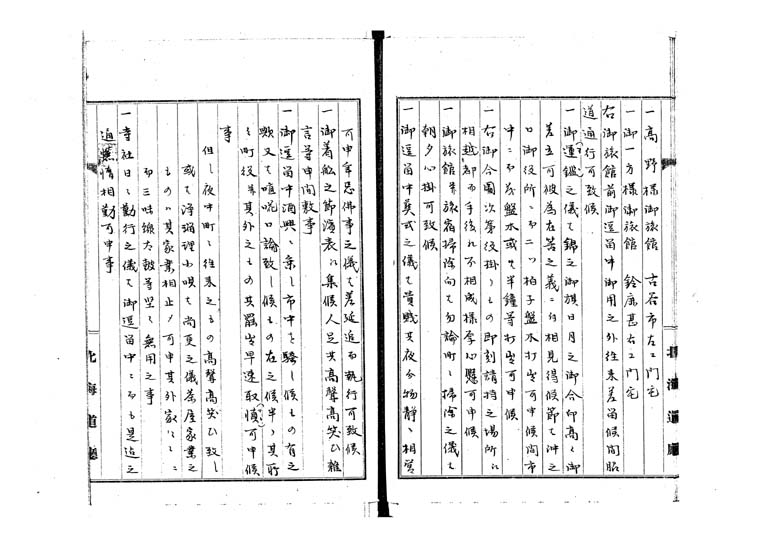 一高野様御旅館 古谷市左エ門宅
一御一方様御旅館 鈴鹿甚右エ門宅
右御旅館前御逗留中御用之外往来差留候間脇
道通行可致候
一御運
差立可被為在筈之義ニ付相見得候節ハ沖之
口御役所ニ而二ツ拍子盤木打出可申候間市
中ニ而茂盤木或ハ半鐘等打出可申候
右御合図次第役掛りもの即刻請持之場所江
相越却而手後ニ不相成様厚心懸可申候
一御旅館並旅宿掃除向ハ勿論町々掃除之儀も
朝夕心掛可致候
一御逗留中異式之儀ハ貴賤共夜分物静ニ相営
可申年忌佛事之儀ハ差延追而執行可致候
一御着船之節濱表江集候人足共高聲高笑ひ雑
言等申間敷事
一御逗留中酒興ニ乗し市中を騒し候もの有之
類又ハ喧呶口論致し候もの在之候半ハ其所
之町役並其外之もの共罷出早速取慎可申候
事
但し夜中町々往来之もの高聲高笑ひ致し
或は浄瑠理小唄ハ尚更之儀茶屋家業之
もの江其家業相止メ可申其外家々ニ
而三味線太鼓等堅く無用之事
一寺社日々勤行之儀ハ御逗留中ニ而も是迄之
通無
北海道廳
北海道廳